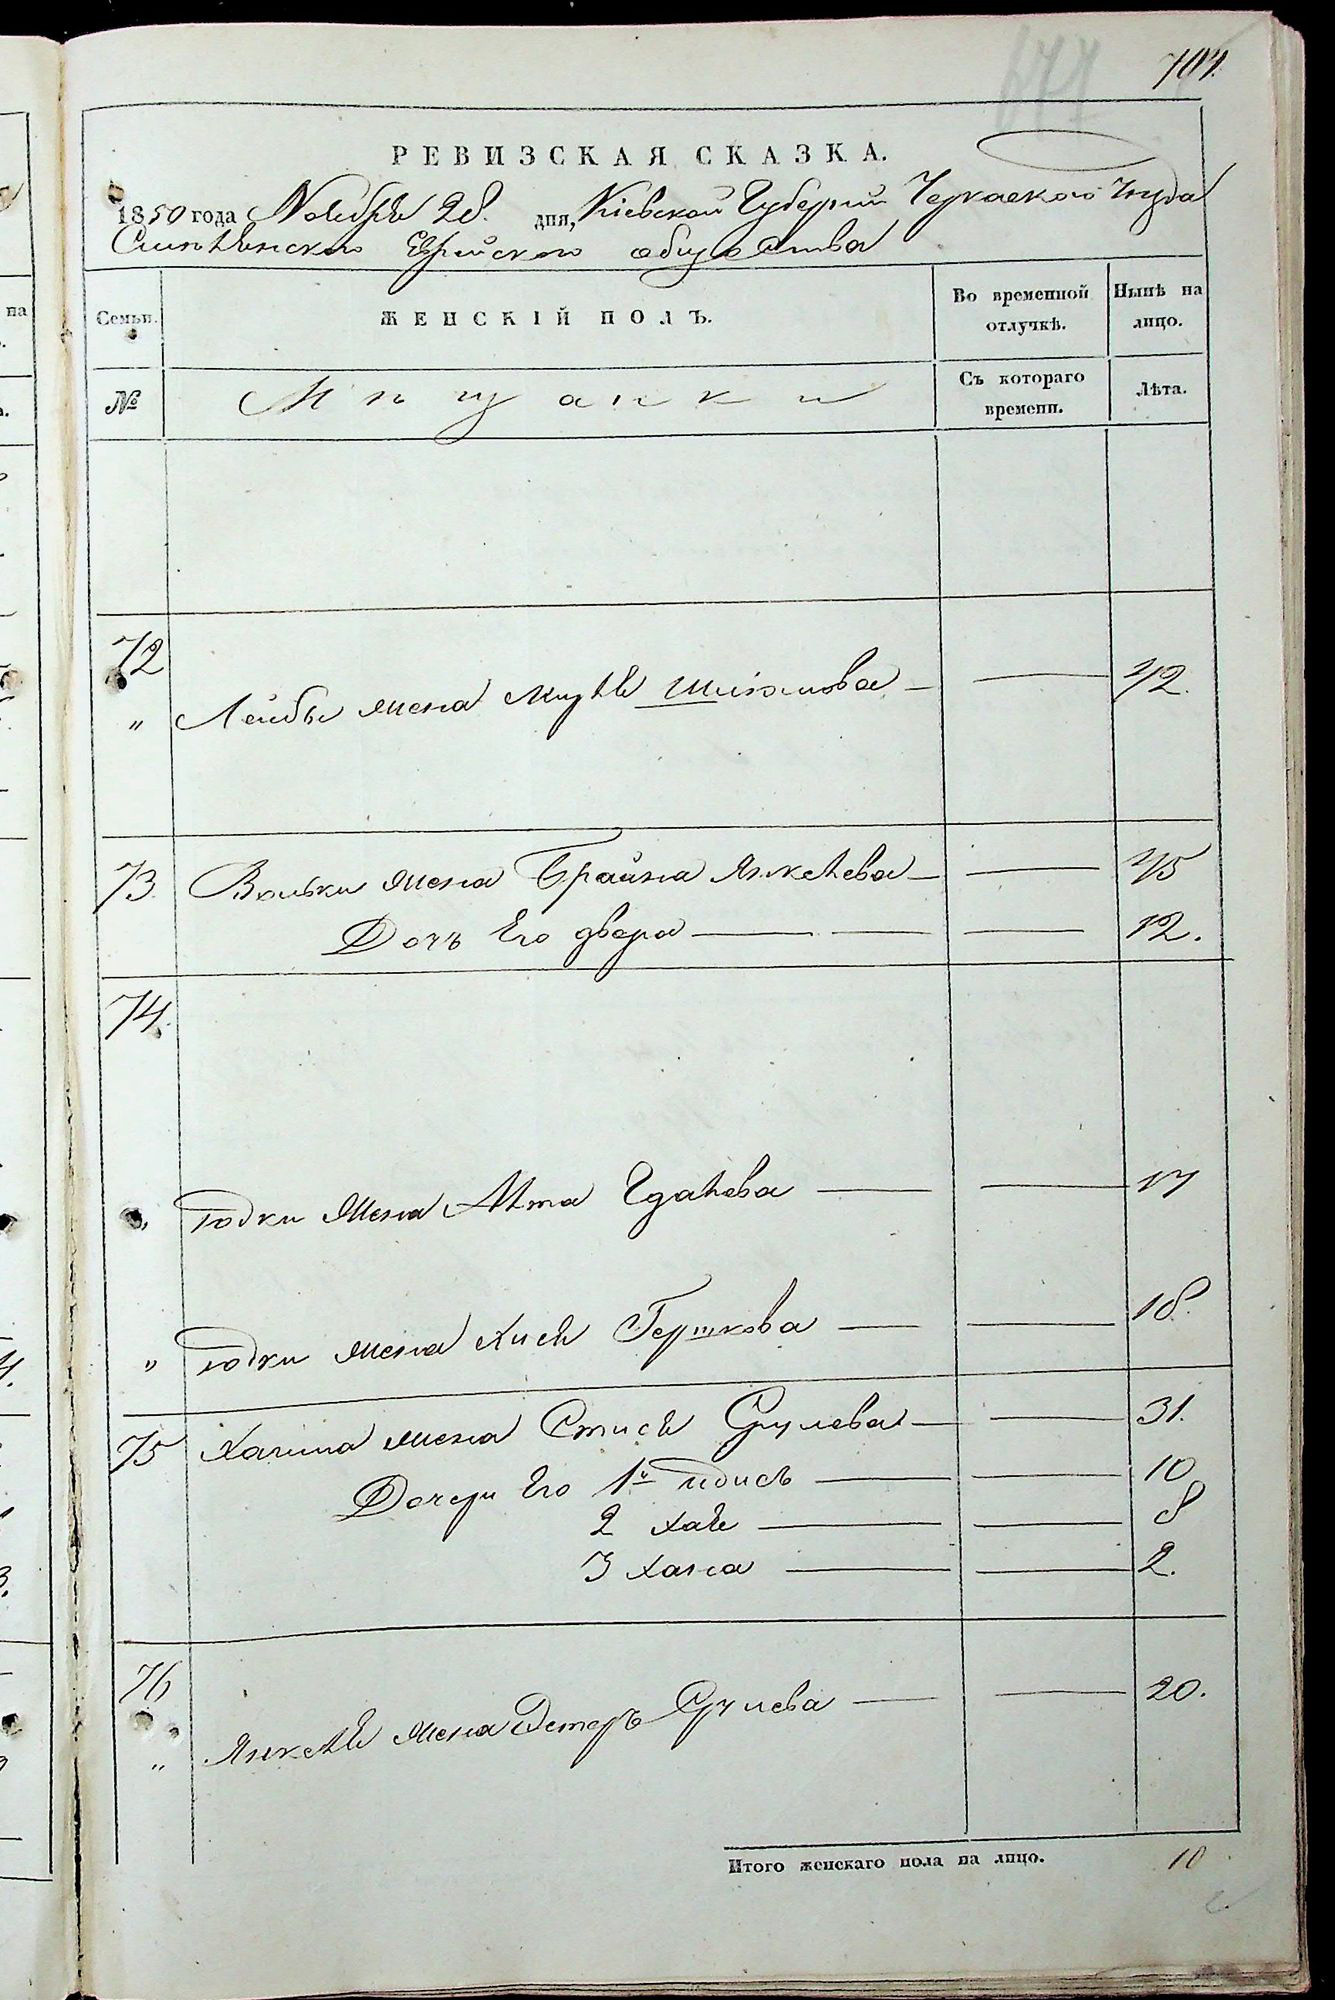 677
704.
РЕВИЗСКАЯ СКАЗКА.
1850 года Ноября 28. дня, Кіевской Губерніи Черкаскаго Уѣзда
Смѣлянскаго Еврейскаго общества
Семьи.
ЖЕНСКІЙ ПОЛЪ.
Во временной отлучкѣ.
Нынѣ на лицо.
№
Мѣщанки
Съ котораго времени.
Лѣта.
72
" Лейбы жена Шліомова — — 42.
73. Вольки жена Брайна Янкелева — — 45
Дочь Его двера — — — 12.
74.
" жена Гдалева — — 17
" жена Хися Гершкова — — 18.
75 Хаима жена Стися Срулева — — 31.
Дочери Его 1я идись — — 10
2 Хая — — 8
3 Хана — — 2.
76
" Янкеля жена Эстеръ Срулева — — 20.
Итого женскаго пола на лицо. 10